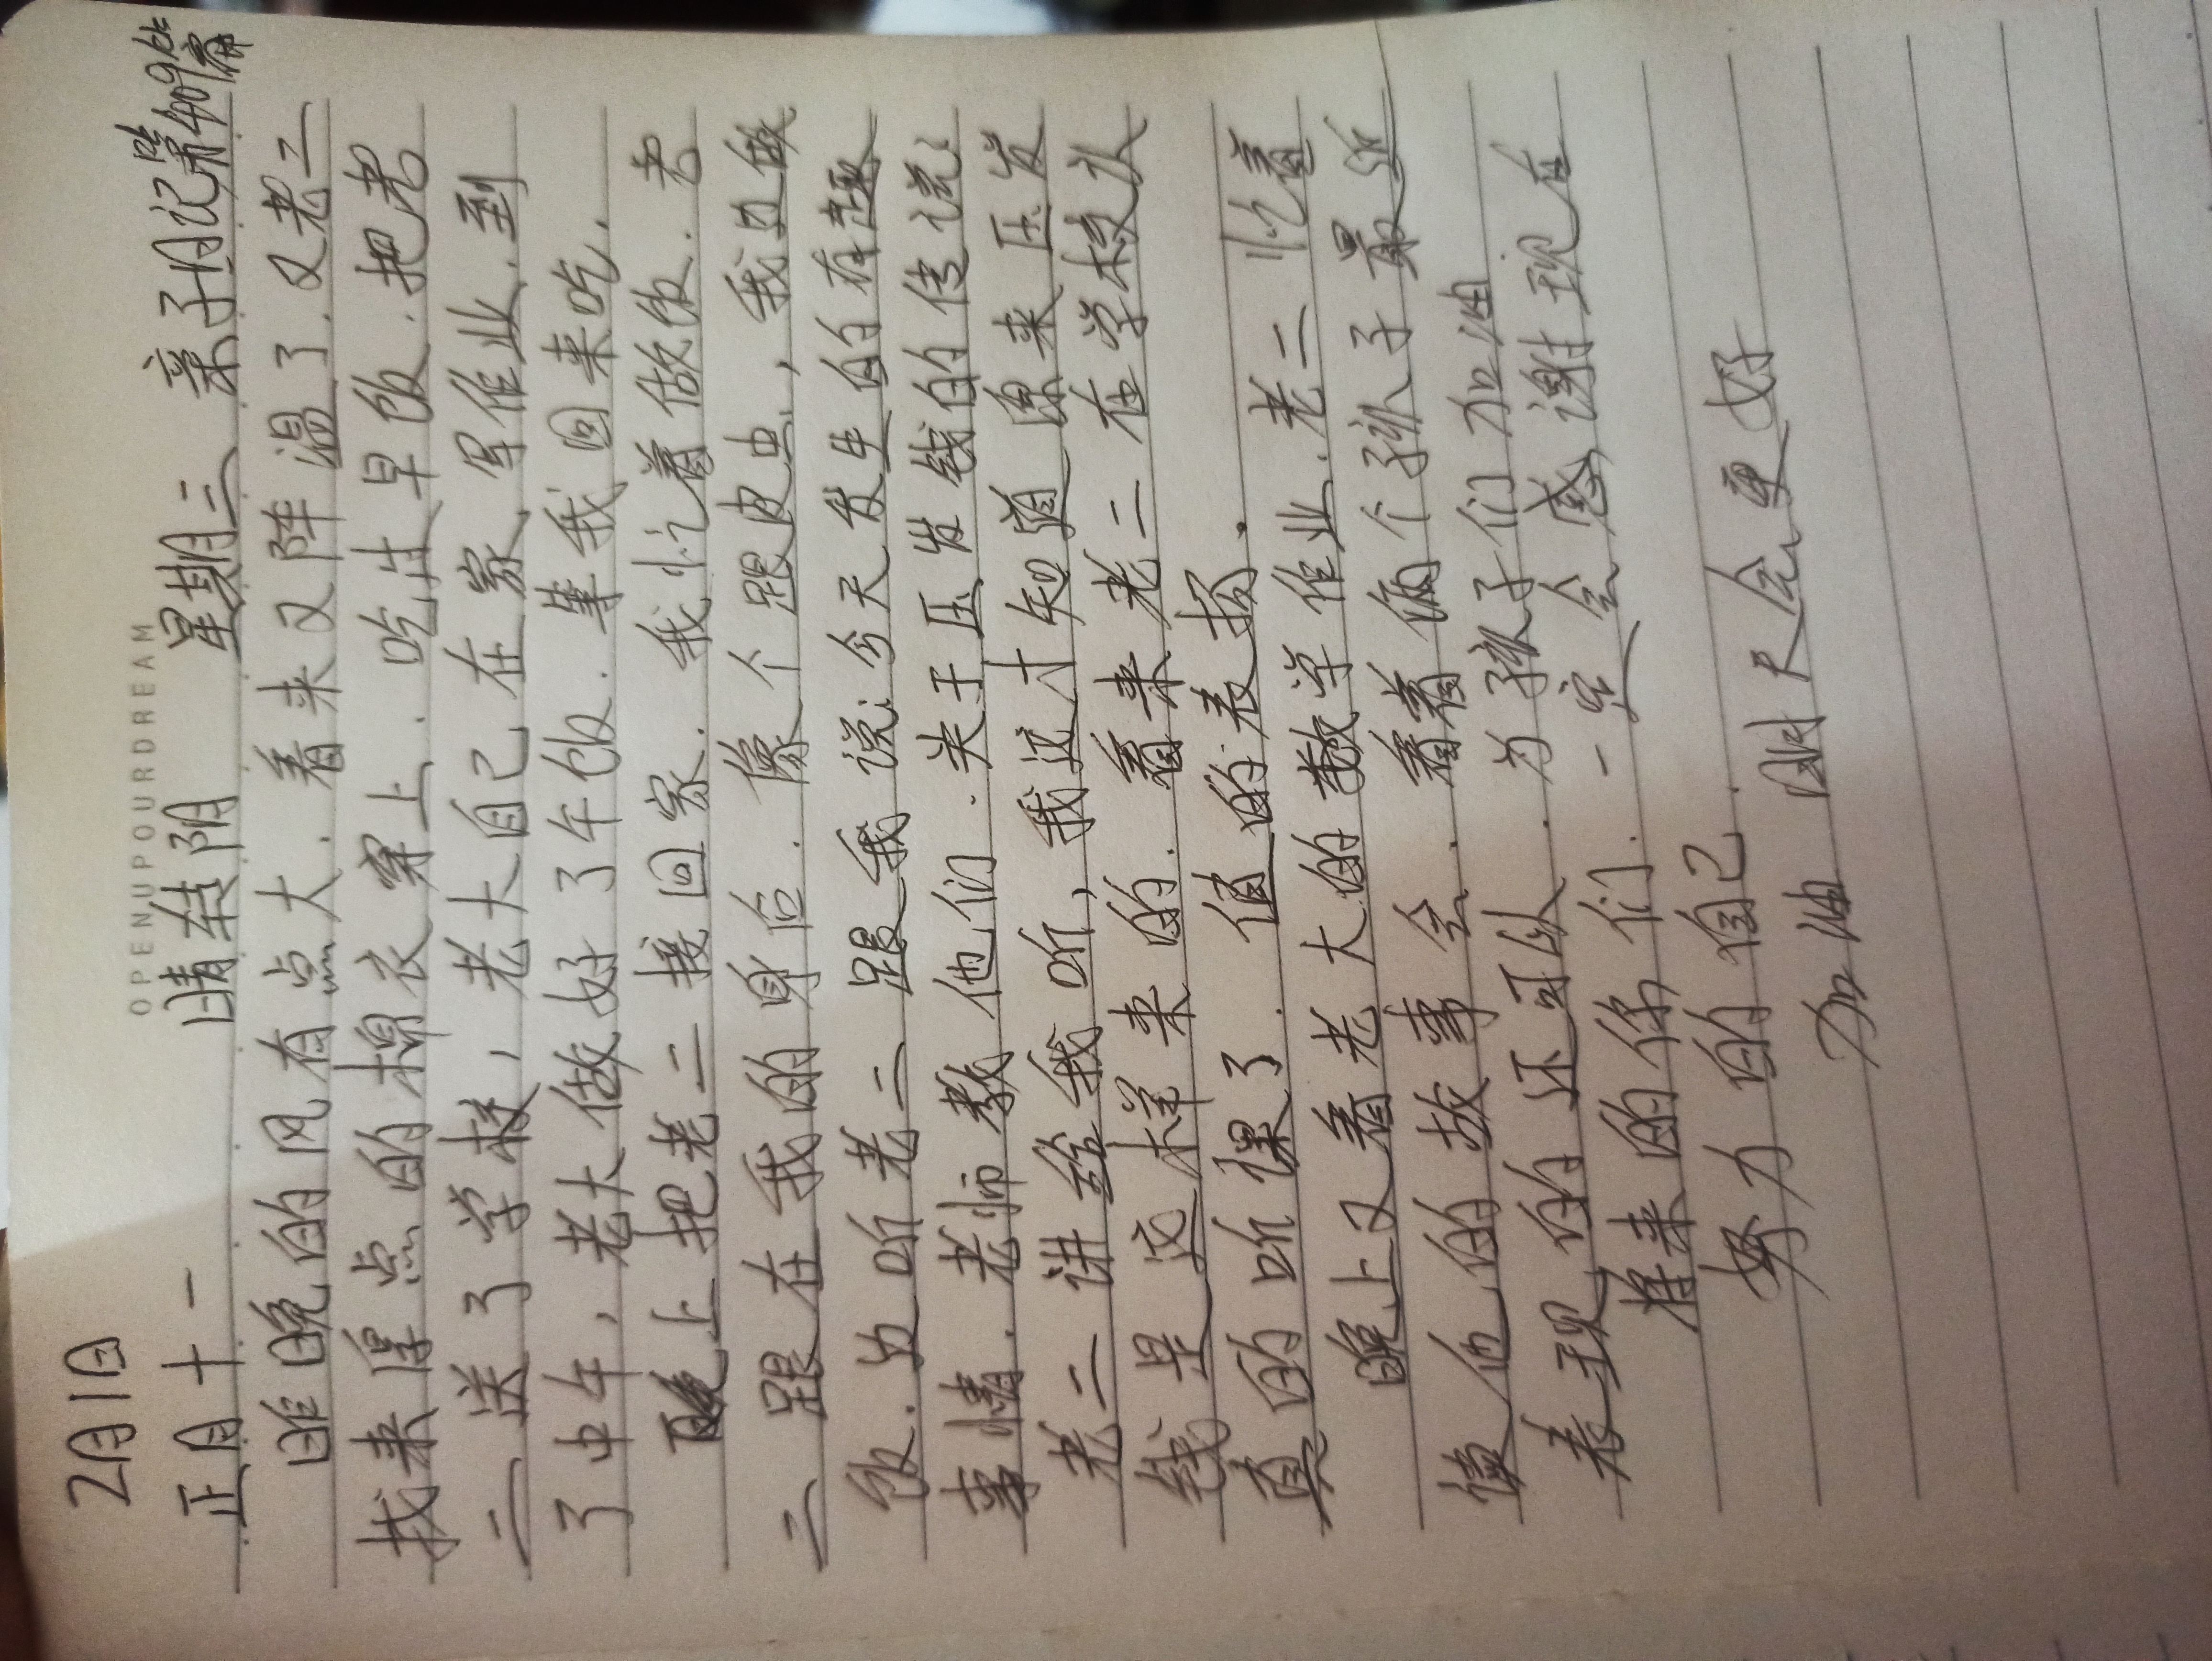 2月1日
OPENUPOURDREAM
正月十一 晴转阴 星期三 亲子日记第409篇
昨晚的风有点大.看来又降温了.又老二
找来厚点的棉衣穿上.吃过早饭.把老
二送了学校,老大自己在家,写作业.到
了中午,老大做好了午饭.等我回来吃.
晚上把老二接回家.我忙着做饭.老
二跟在我的身后.像个跟皮虫,我边做
饭.边听老二跟我说:今天发生的有趣
事情.老师教他们.关于压岁钱的传说:
老二讲给我听,我这才知道原来压岁
钱是这样来的.看来老二在学校认
真的听课了.值的表扬.
晚上又看老大的数学作业.老二忙着
读他的故事会.看着两个孩子最近
表现的还可以.为孩子们加油
将来的你们.一定会感谢现在
努力的自己.
加油 明天会更好